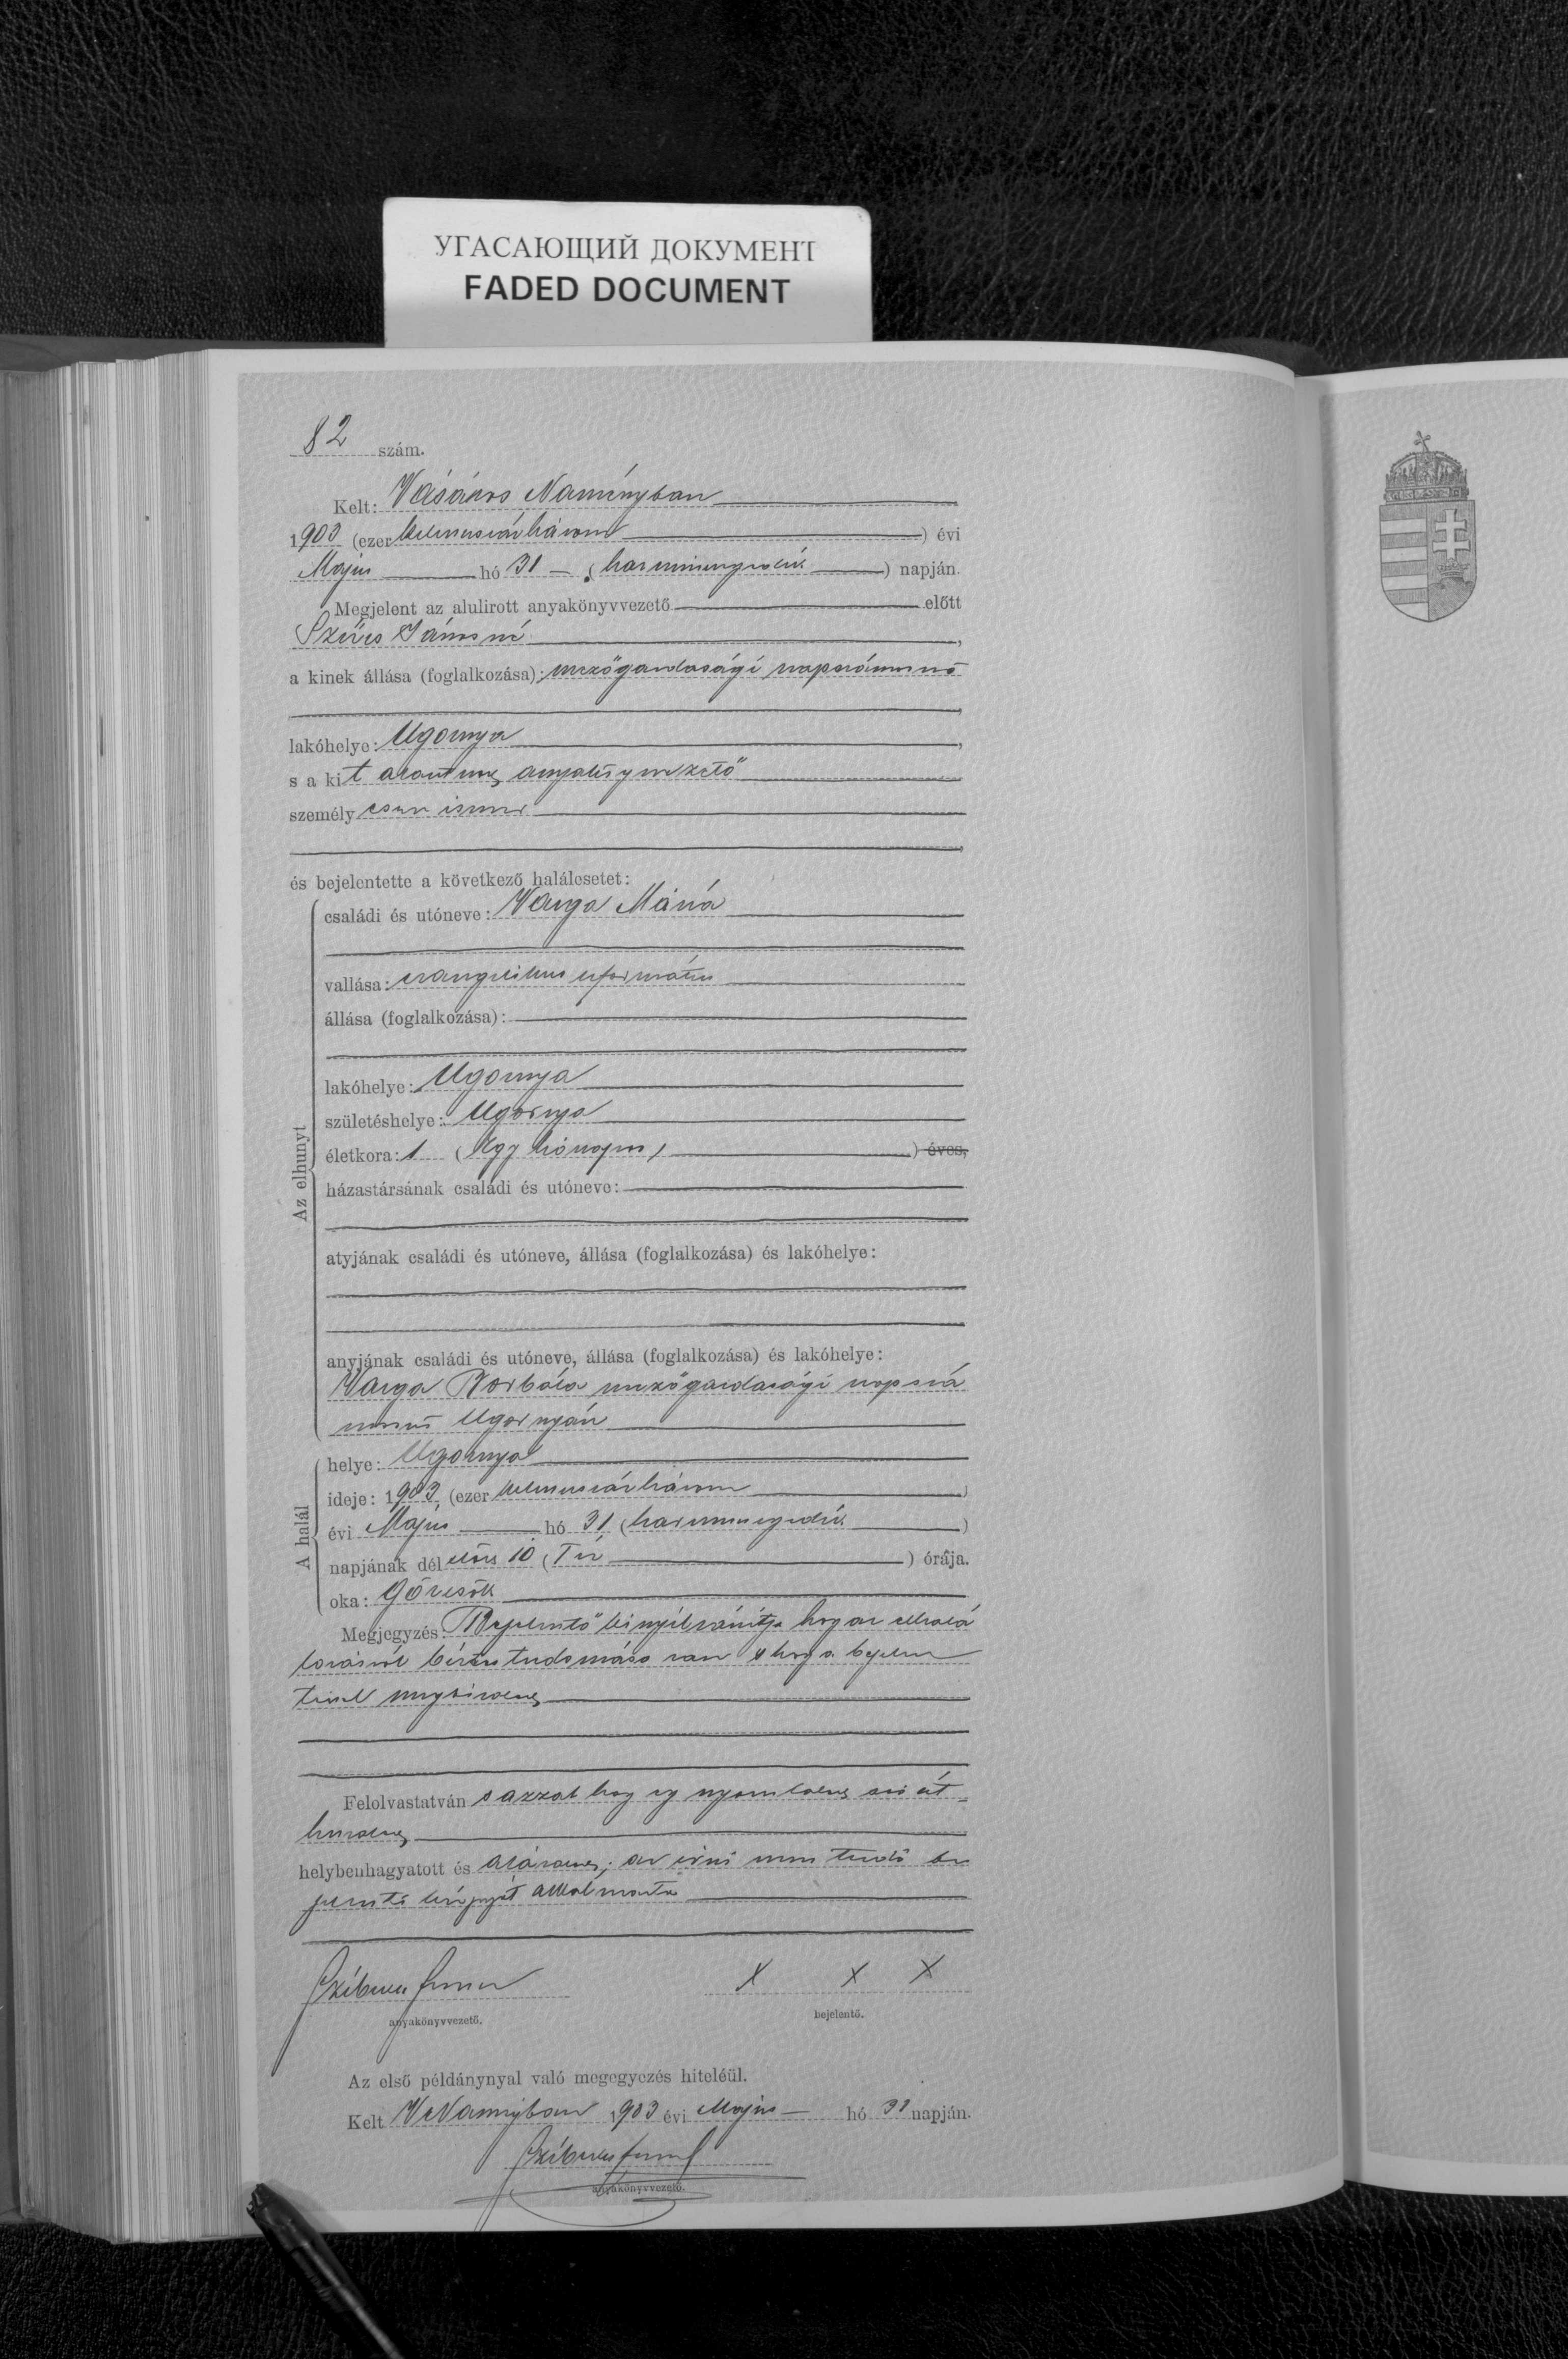 УГАСАЮЩИЙ ДОКУМЕНТ
FADED DOCUMENT
82 szám.
Kelt: Vásáros Naményban
1903 (ezer kilenczszázhárom) évi
Május hó 31 (harminczegyedik) napján.
Megjelent az alulirott anyakönyvvezető előtt
Szűcs Jánosné,
a kinek állása (foglalkozása): mezőgazdasági napszámosnő
lakóhelye: Ugornya,
s a kit anyakönyvvezető
személyesen ismer
és bejelentette a következő halálesetet:
Az elhunyt
családi és utóneve: Varga Mária
vallása: evangélikus református
állása (foglalkozása):
lakóhelye: Ugornya
születéshelye: Ugornya
életkora: 1 (Egy hónapos) éves,
házastársának családi és utóneve:
atyjának családi és utóneve, állása (foglalkozása) és lakóhelye:
anyjának családi és utóneve, állása (foglalkozása) és lakóhelye:
Varga Borbála mezőgazdasági napszá
mosnő Ugornyán
A halál
helye: Ugornya
ideje: 1903 (ezer kilenczszázhárom)
évi Május hó 31 (harminczegyedik)
napjának délelőtt 10 (Tíz) órája.
oka: Görcsök
Megjegyzés: Bejelentő kinyilvánítja hogy az elhalá
lozásról biztos tudomása van s hogy a bejelen
téssel megbízva
Felolvastatván s azzal hogy
helybenhagyatott és aláíratott; az írni nem tudó be
jelentő kézjegyét alkalmazta
X X X
anyakönyvvezető. bejelentő.
Az első példánynyal való megegyezés hiteléül.
Kelt VNaményban 1903 évi Május hó 31 napján.
anyakönyvvezető.